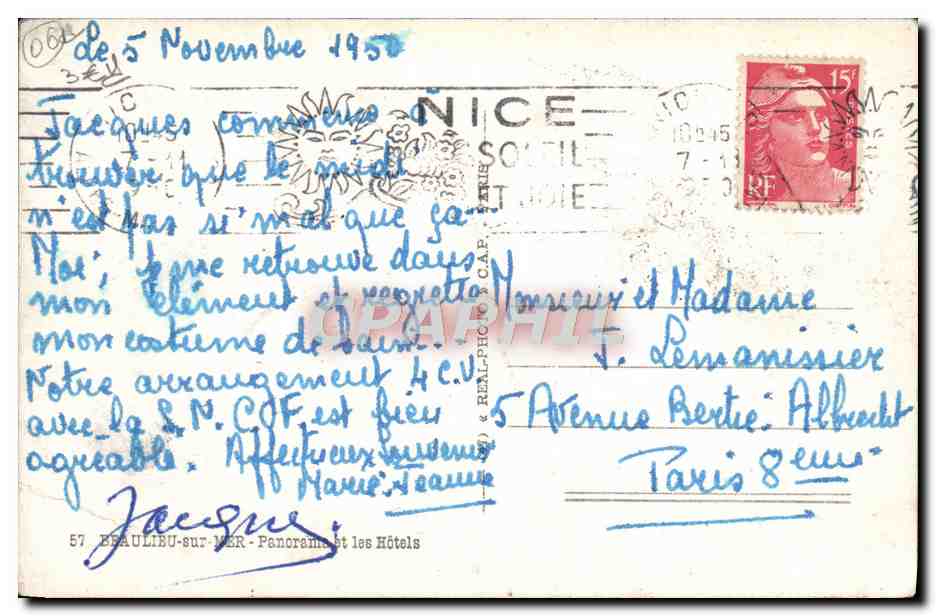 Le 5 Novembre 1950
Jacques commence à
trouver que le midi
n'est pas si mal que ça...
Moi, je me retrouve dans
mon élément et regrette
mon costume de bain.
Notre arrangement 4 C.V.
avec la S.N.C.F. est bien
agréable. Affectueux souvenir
Marie-Jeanne
Jacques.
57 BEAULIEU-sur-MER - Panorama et les Hôtels
« REAL-PHOTO » C.A.P. PARIS
NICE
SOLEIL
ET JOIE
15F
RF
Monsieur et Madame
J. Lemanissier
5 Avenue Bertie Albrecht
Paris 8eme
CPAPHIL